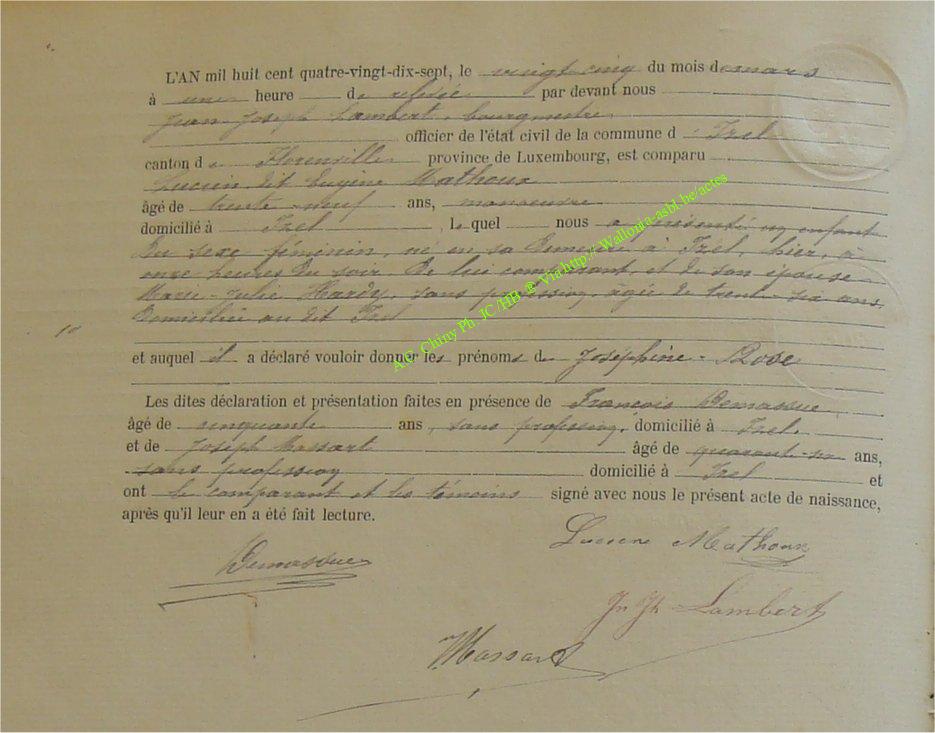 L'AN mil huit cent quatre-vingt-dix-sept, le vingt-cinq du mois de mars
à une heure de relevée par devant nous
Jean-Joseph Lambert, bourgmestre
officier de l'état civil de la commune d'Izel
canton de Florenville province de Luxembourg, est comparu
Lucien dit Eugène Mathoux
âgé de trente-neuf ans, manoeuvre
domicilié à Izel, lequel nous a présenté un enfant
du sexe féminin, né en sa demeure à Izel, hier, à
onze heures du soir de lui comparant, et de son épouse
Marie-Julie Hardy, sans profession, âgée de trente-six ans,
domiciliée au dit Izel
10
et auquel il a déclaré vouloir donner les prénoms de Joséphine-Rose
Les dites déclaration et présentation faites en présence de François Demassue
âgé de cinquante ans, sans profession, domicilié à Izel
et de Joseph Massart âgé de quarante-six ans,
sans profession domicilié à Izel et
ont le comparant et les témoins signé avec nous le présent acte de naissance,
après qu'il leur en a été fait lecture.
Lucien Mathoux
Demassue
Jn Jh Lambert
Massart
Chiny Ph. JC /HB ® Via http:// Wallonia-asbl.be/actes